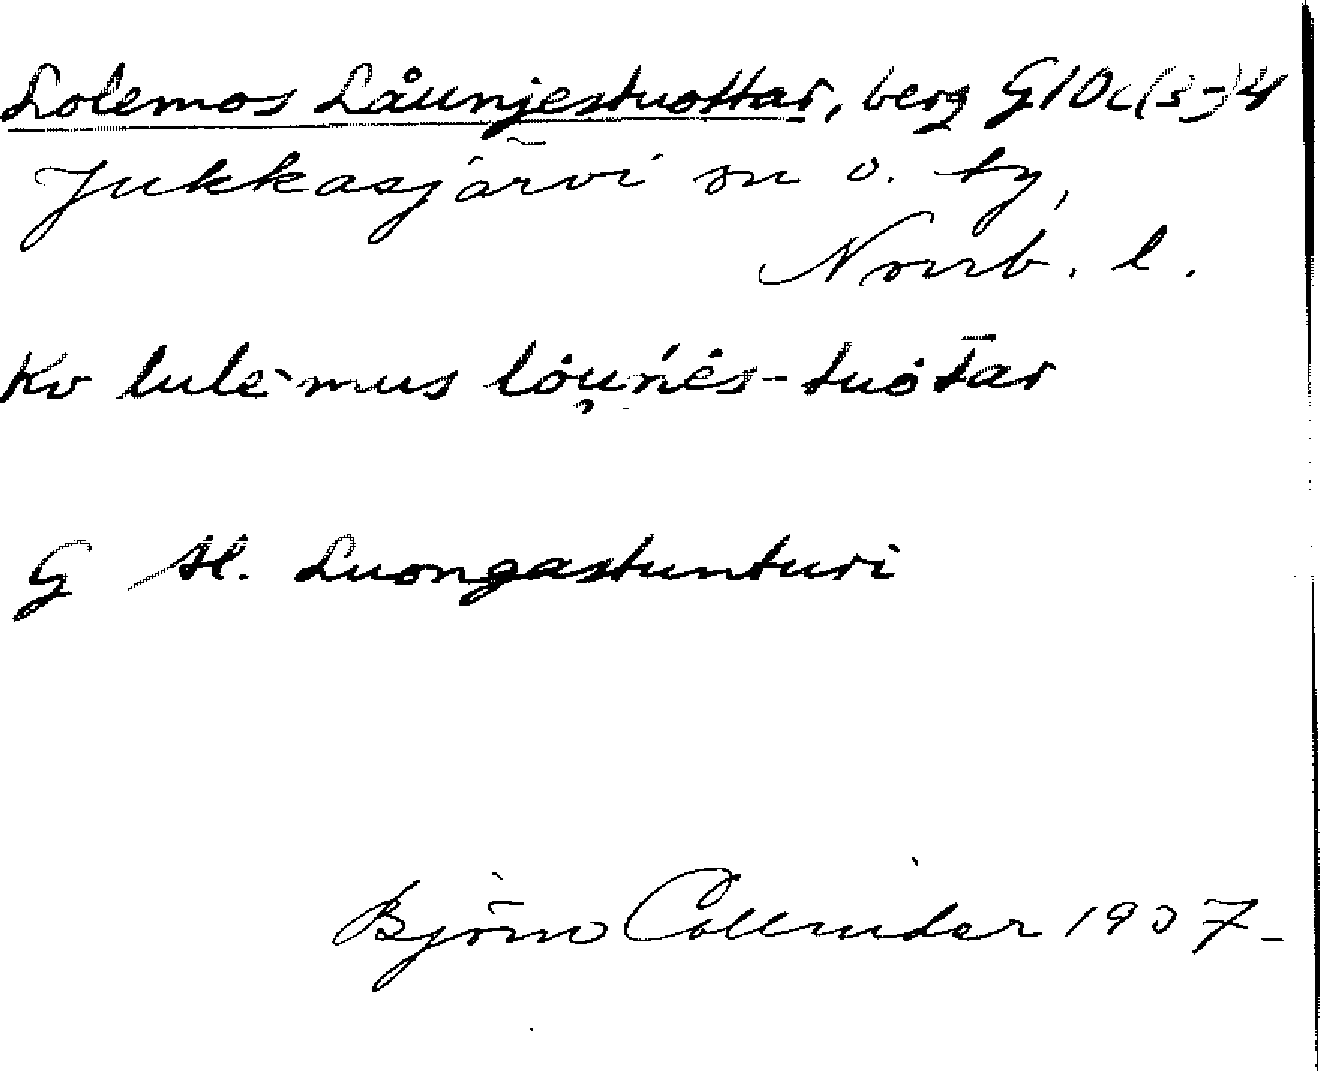 Lolemos Låunjestuottar, berg G10c(3-)4
Jukkasjärvi sn o. ty,
Norrb. l.
Kv lulēmus
G Hl. Luongastunturi
Björn Collinder 1937-